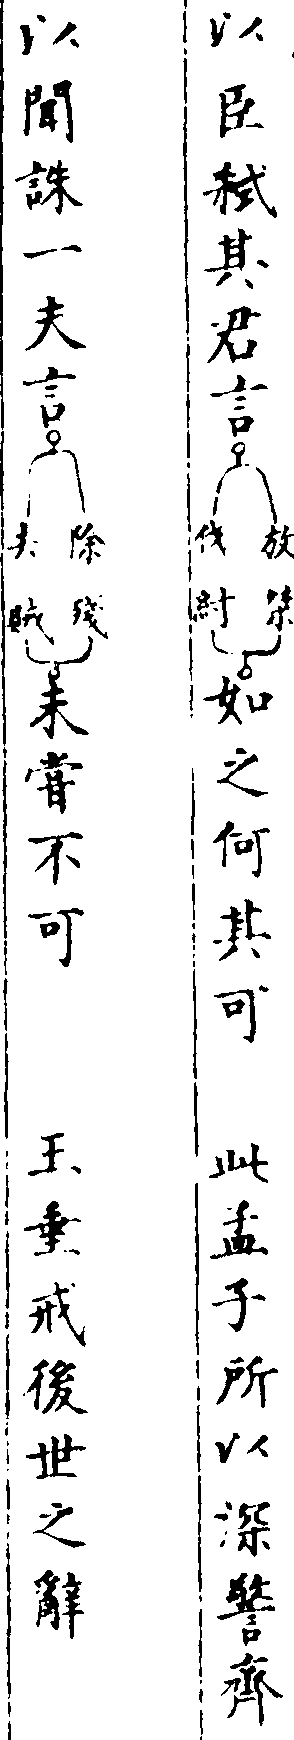 以臣弑其君言 放桀 伐紂 如之何其可 此孟子所以深警齊
以聞誅一夫言 除殘 去賊 未嘗不可 王垂戒後世之辭